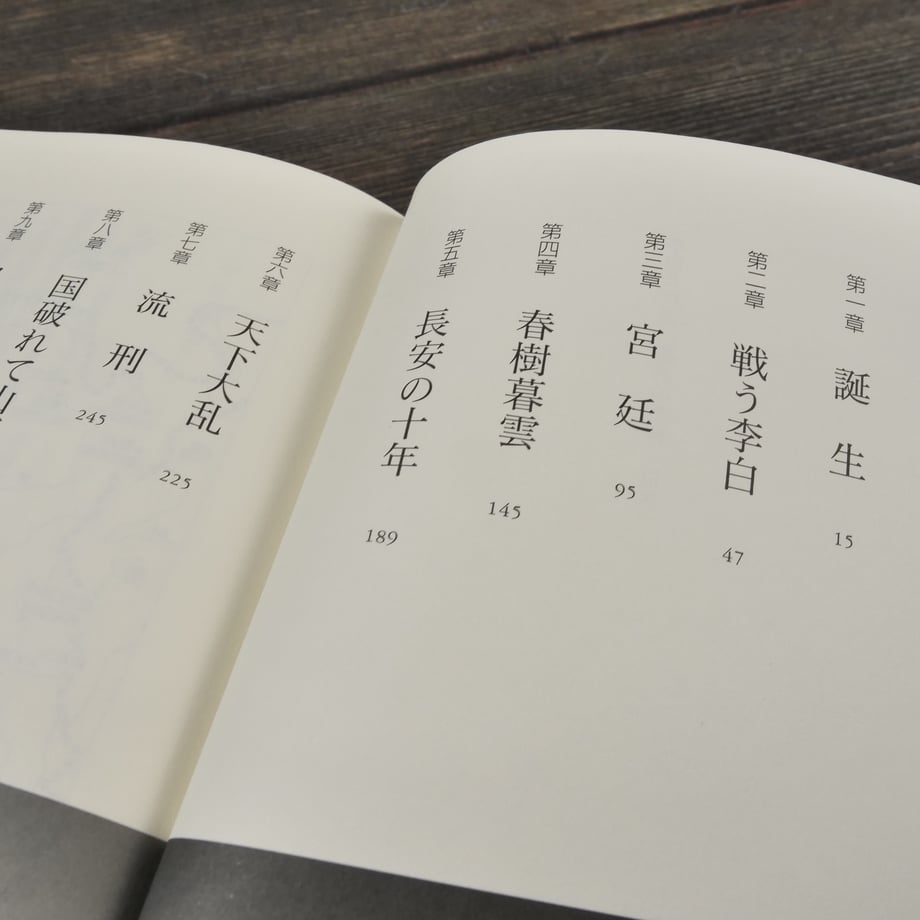 第一章
誕生
15
第二章
戦う李白
47
第三章
宮廷
95
第四章
春樹暮雲
145
第五章
長安の十年
189
第六章
天下大乱
225
第七章
流刑
245
第八章
国破れて
第九章